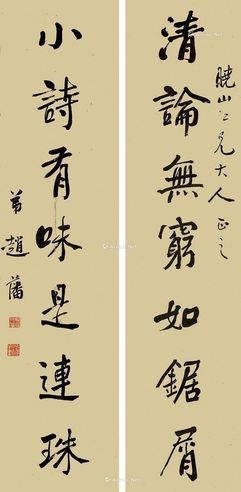 曉山仁兄大人正之
清論無窮如鋸屑
小詩有味是連珠
弟趙藩